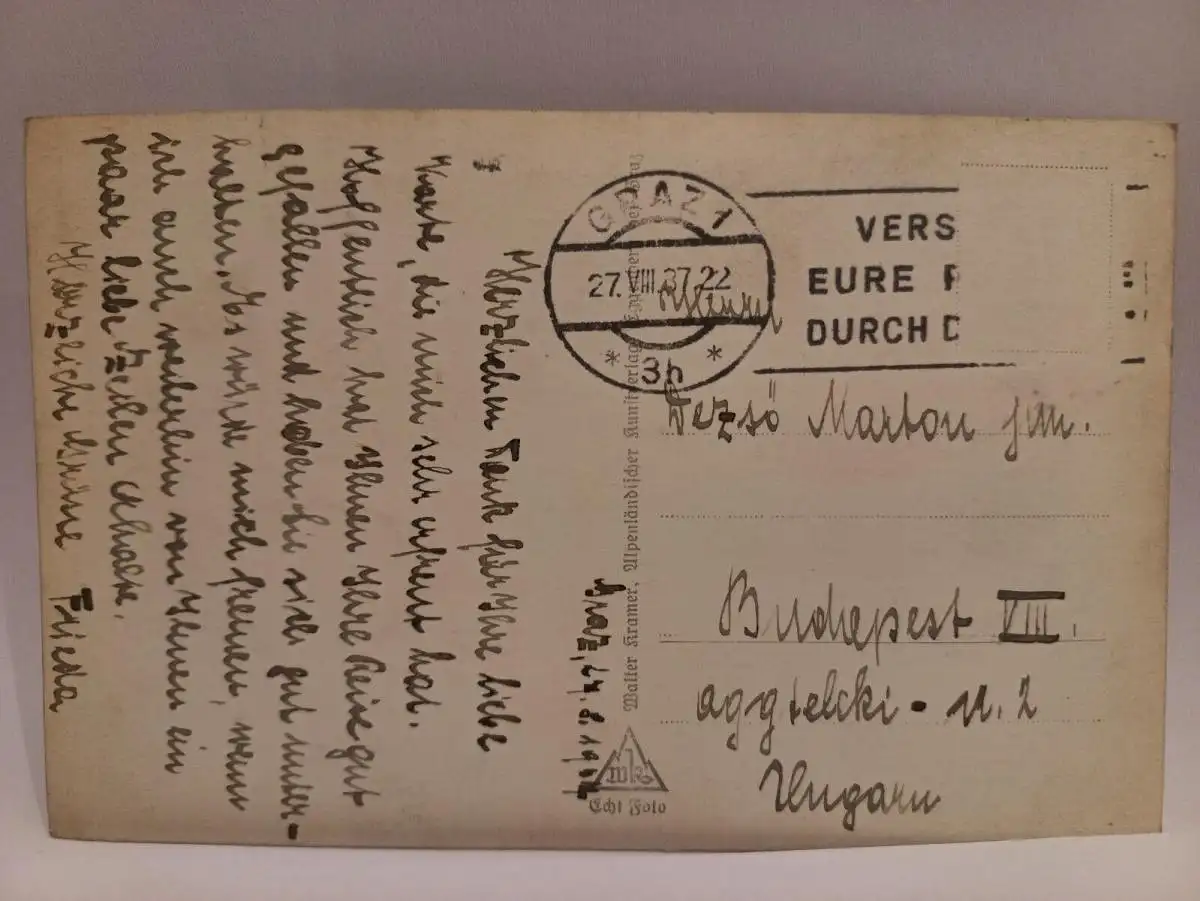 Graz, 27.8.1937
Herzlichen Dank für Ihre liebe
Karte, die mich sehr erfreut hat.
Hoffentlich hat Ihnen Ihre Reise gut
gefallen und haben Sie sich gut unter-
halten. Es würde mich freuen, wenn
ich auch weiterhin von Ihnen ein
paar liebe Zeilen erhalte.
Herzliche Grüße Frieda
Walter Kramer, Alpenländischer Kunstverlag
WK
Echt Foto
GRAZ 1
27.VIII.37.22
* 3b *
VERS
EURE
DURCH D
Dezsö Marton jun.
Budapest VIII.
aggteleki-u. 2
Ungarn